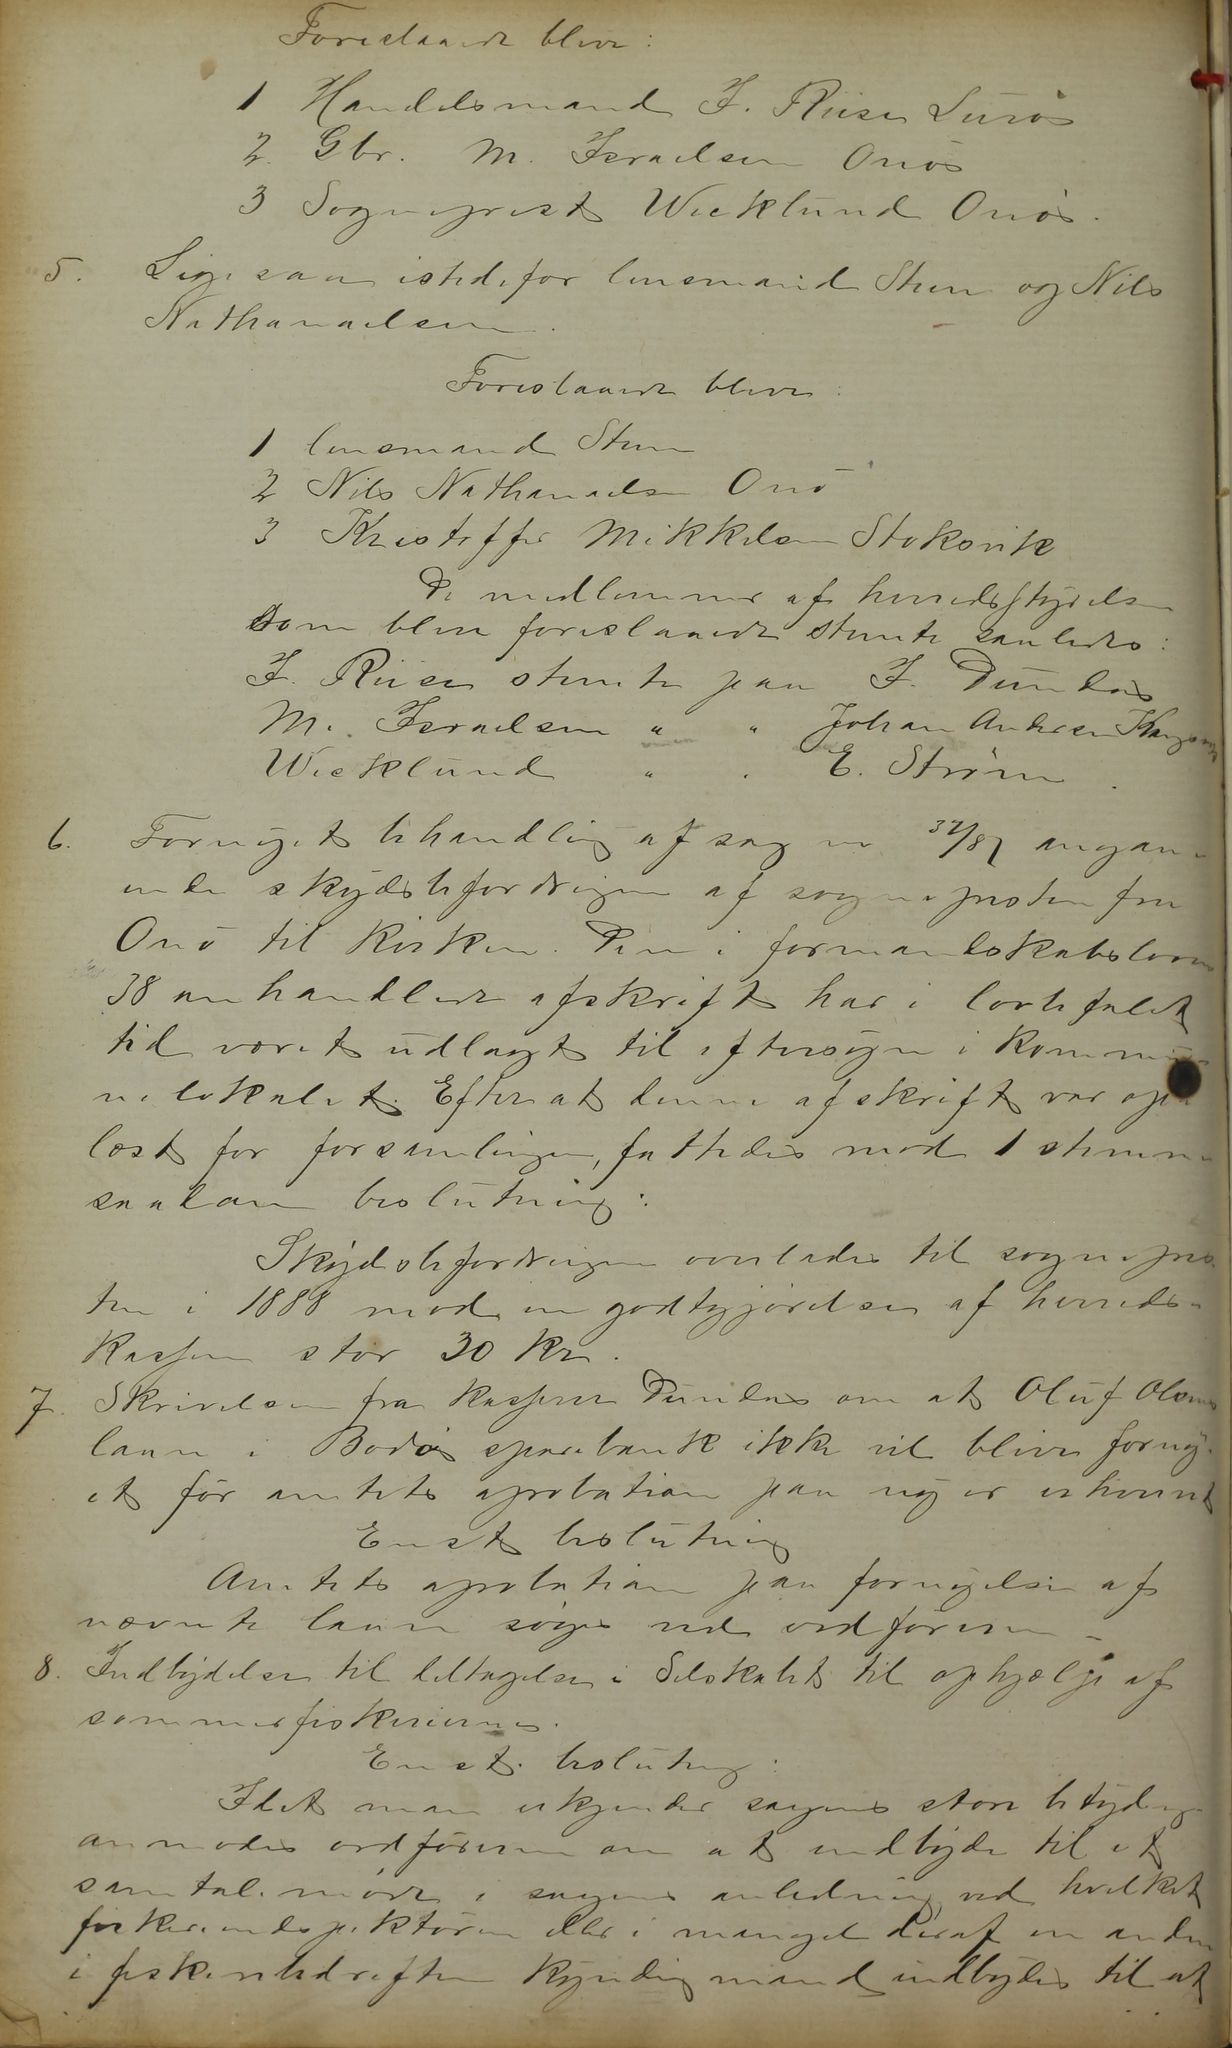 Foreslaaede blev:
1 Handelsmand I. Riise Lurö
2. Gbr. M. Israelsen Onö
3 Sogneprest Wecklund Onö.
5. Ligesaa istedefor lensmand Steen og Nils
Nathanaelsen.
Foreslaaede bleve:
1 lensmand Steen
2 Nils Nathanaelsen Onö
3 Kristoffer Mikkelsen Stoksvik
De medlemmer af herredsstyrelsen
som bleve foreslaaede stemte saaledes:
I. Riise stemte paa I. Dundas
M. Israelsen " " Johan Andersen
Wecklund " " E. Ström.
6. Fornyet behandling af sag no 37/87 angaa-
ende skydsbefordringen af sognepresten fra
Onö til kirken. Den i formandskabslovens
38 omhandlede afskrift har i lovbefalet
tid været udlagt til eftersyn i kommu-
nelokalet. Efterat denne afskrift var op-
læst for forsamlingen, fattedes mod 1 stemme
saadan beslutning:
Skydsbefordringen overlades til sognepres-
ten i 1888 mod en godtgjörelse af herreds-
kassen stor 30 kr.
7. Skrivelse fra kasserer Dundas om at Oluf Olsens
laan i Bodö sparebank ikke vil blive forny-
et för amtets aprobation paa ny er erhvervet
Enst beslutning
Amtets aprobation paa fornyelse af
nævnte laan söges ved ordföreren -
8. Indbydelse til deltagelse i Selskabet til ophjælp af
sommerfiskerierne.
Enst. beslutning:
Idet man erkjender sagens store betydning
anmodes ordföreren om at indbyde til et
samtalemöde i sagens anledning ved hvilket
fiskeriinspektören eller i mangel deraf en anden
i fiskeribedriften kyndig mand indbydes til at